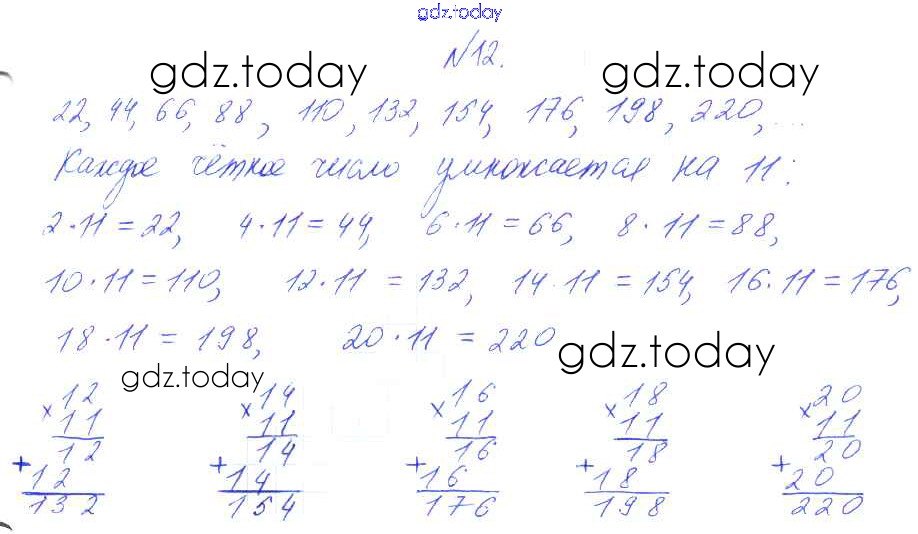 gdz.today
№12.
gdz.today gdz.today
22, 44, 66, 88, 110, 132, 154, 176, 198, 220, ...
Каждое чётное число умножается на 11:
2·11=22, 4·11=44, 6·11=66, 8·11=88,
10·11=110, 12·11=132, 14·11=154, 16·11=176,
18·11=198, 20·11=220
gdz.today
gdz.today
×12 ×14 ×16 ×18 ×20
11 11 11 11 11
12 14 16 18 20
+12 +14 +16 +18 +20
132 154 176 198 220